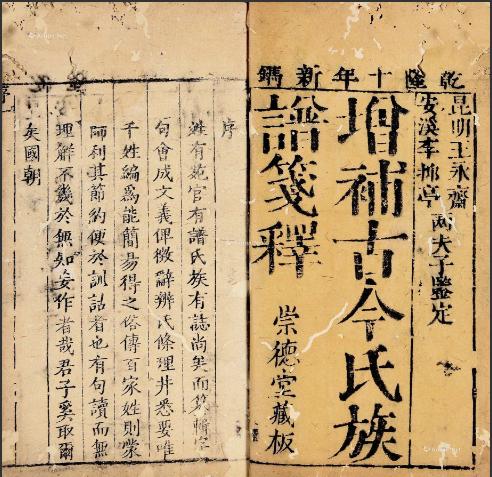 乾隆十年新鐫
昆明王永齋
安溪李柳亭
兩夫子鑒定
增補古今氏族
譜箋釋
崇德堂藏板
序
姓有苑官有譜氏族有誌尚矣而輯字
句會成文義俾微辭辨氏條理井悉要唯
千姓編為能簡易得之俗傳百家姓則蒙
師利其節約便於訓詁者也有句讀而無
理解不幾於無知妄作者哉君子奚取爾
矣國朝